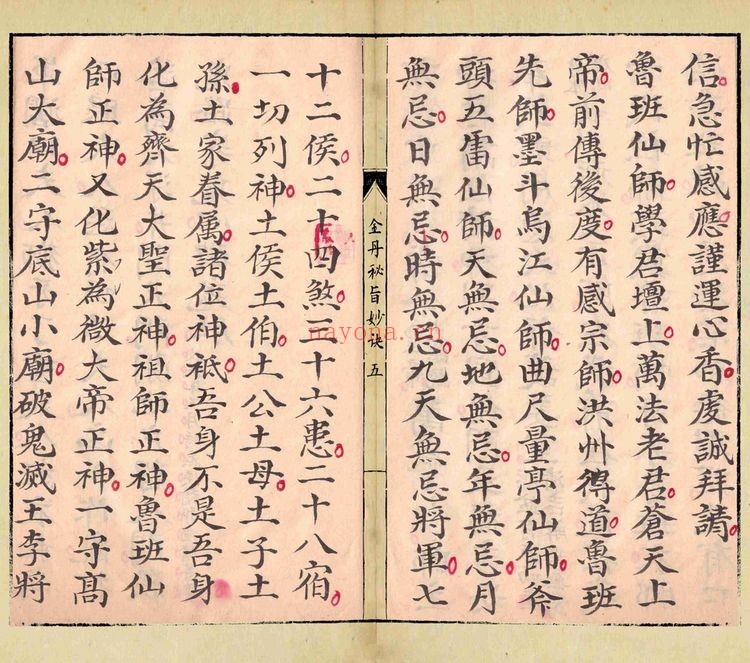 信急忙感應謹運心香虔誠拜請
魯班仙師學君壇上萬法老君蒼天上
帝前傳後度有感宗師洪州得道魯班
先師墨斗烏江仙師曲尺量亭仙師斧
頭五雷仙師天無忌地無忌年無忌月
無忌日無忌時無忌九天無忌將軍七
全丹祕旨妙訣 五
十二侯二十四煞三十六患二十八宿
一切列神土侯土伯土公土母土子土
孫土家眷属諸位神祇吾身不是吾身
化為齊天大聖正神祖師正神魯班仙
師正神又化紫為微大帝正神一守高
山大廟二守底山小廟破鬼滅王李將
nayona.cn